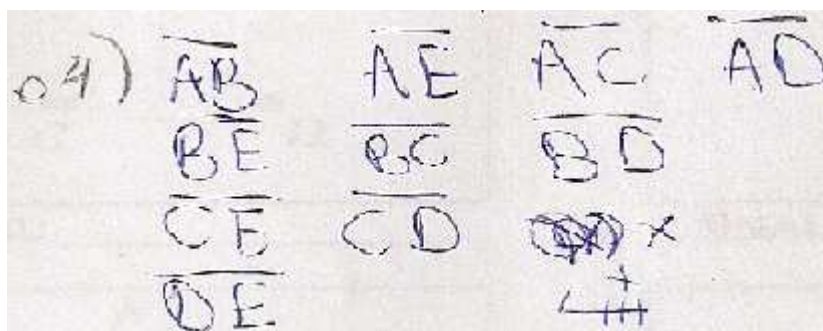 04) A̅B̅ A̅E̅ A̅C̅ A̅D̅
B̅E̅ B̅C̅ B̅D̅
C̅E̅ C̅D̅ ×
D̅E̅